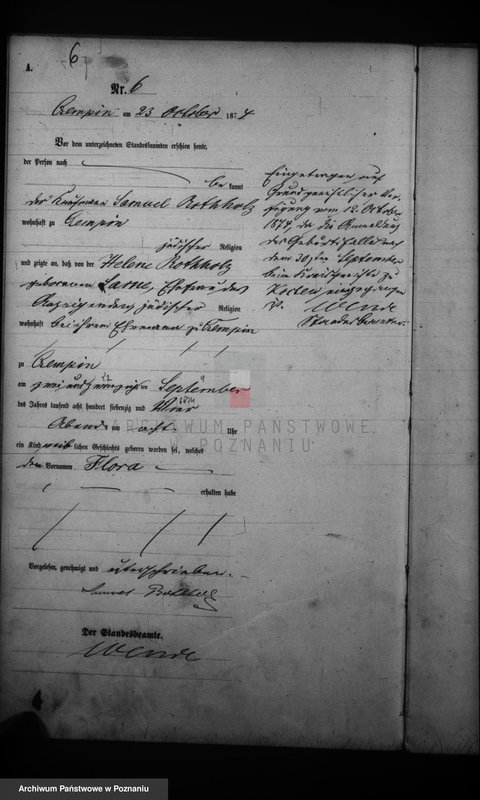 6
A.
Nr. 6
Czempin am 23 October 1874
Vor dem unterzeichneten Standesbeamten erschien heute,
der Person nach
bekannt
der Kaufmann Samuel Rothholz
wohnhaft zu Czempin
jüdischer Religion
und zeigte an, daß von der Helene Rothholz
geborenen Ehefrau des
Anzeigenden jüdischer Religion
wohnhaft bei ihrem Ehemann zu Czempin
zu Czempin
am zwei und zwanzigsten September
22 9
des Jahres tausend acht hundert siebenzig und Vier
1874
Abends um acht Uhr
ein Kind weiblichen Geschlechts geboren worden sei, welches
den Vornamen Flora
erhalten habe
Vorgelesen, genehmigt und unterschrieben
Samuel Rothholz
Der Standesbeamte.
Wende
Eingetragen auf
Grund
fügung vom 12. October
1874, da die Anmeldung
des Geburtsfalles nach
dem 30sten September
beim Kreisgericht zu
Kosten eingegangen
ist. Wende
Standesbeamter.
ARCHIWUM PAŃSTWOWE
W POZNANIU
Archiwum Państwowe w Poznaniu